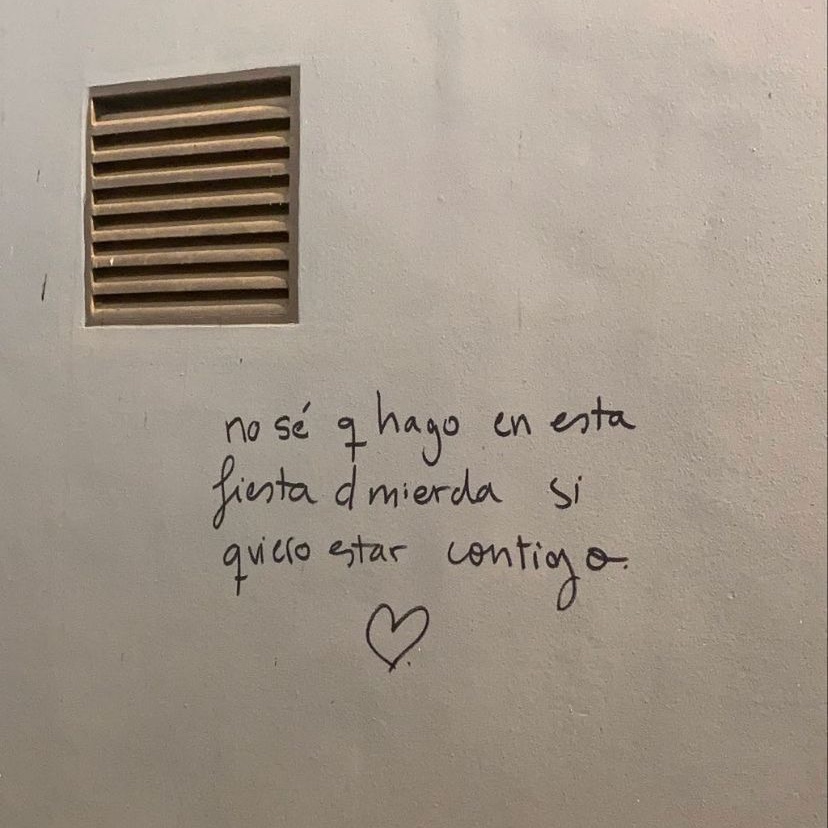 no sé q hago en esta
fiesta d mierda si
quiero estar contigo.